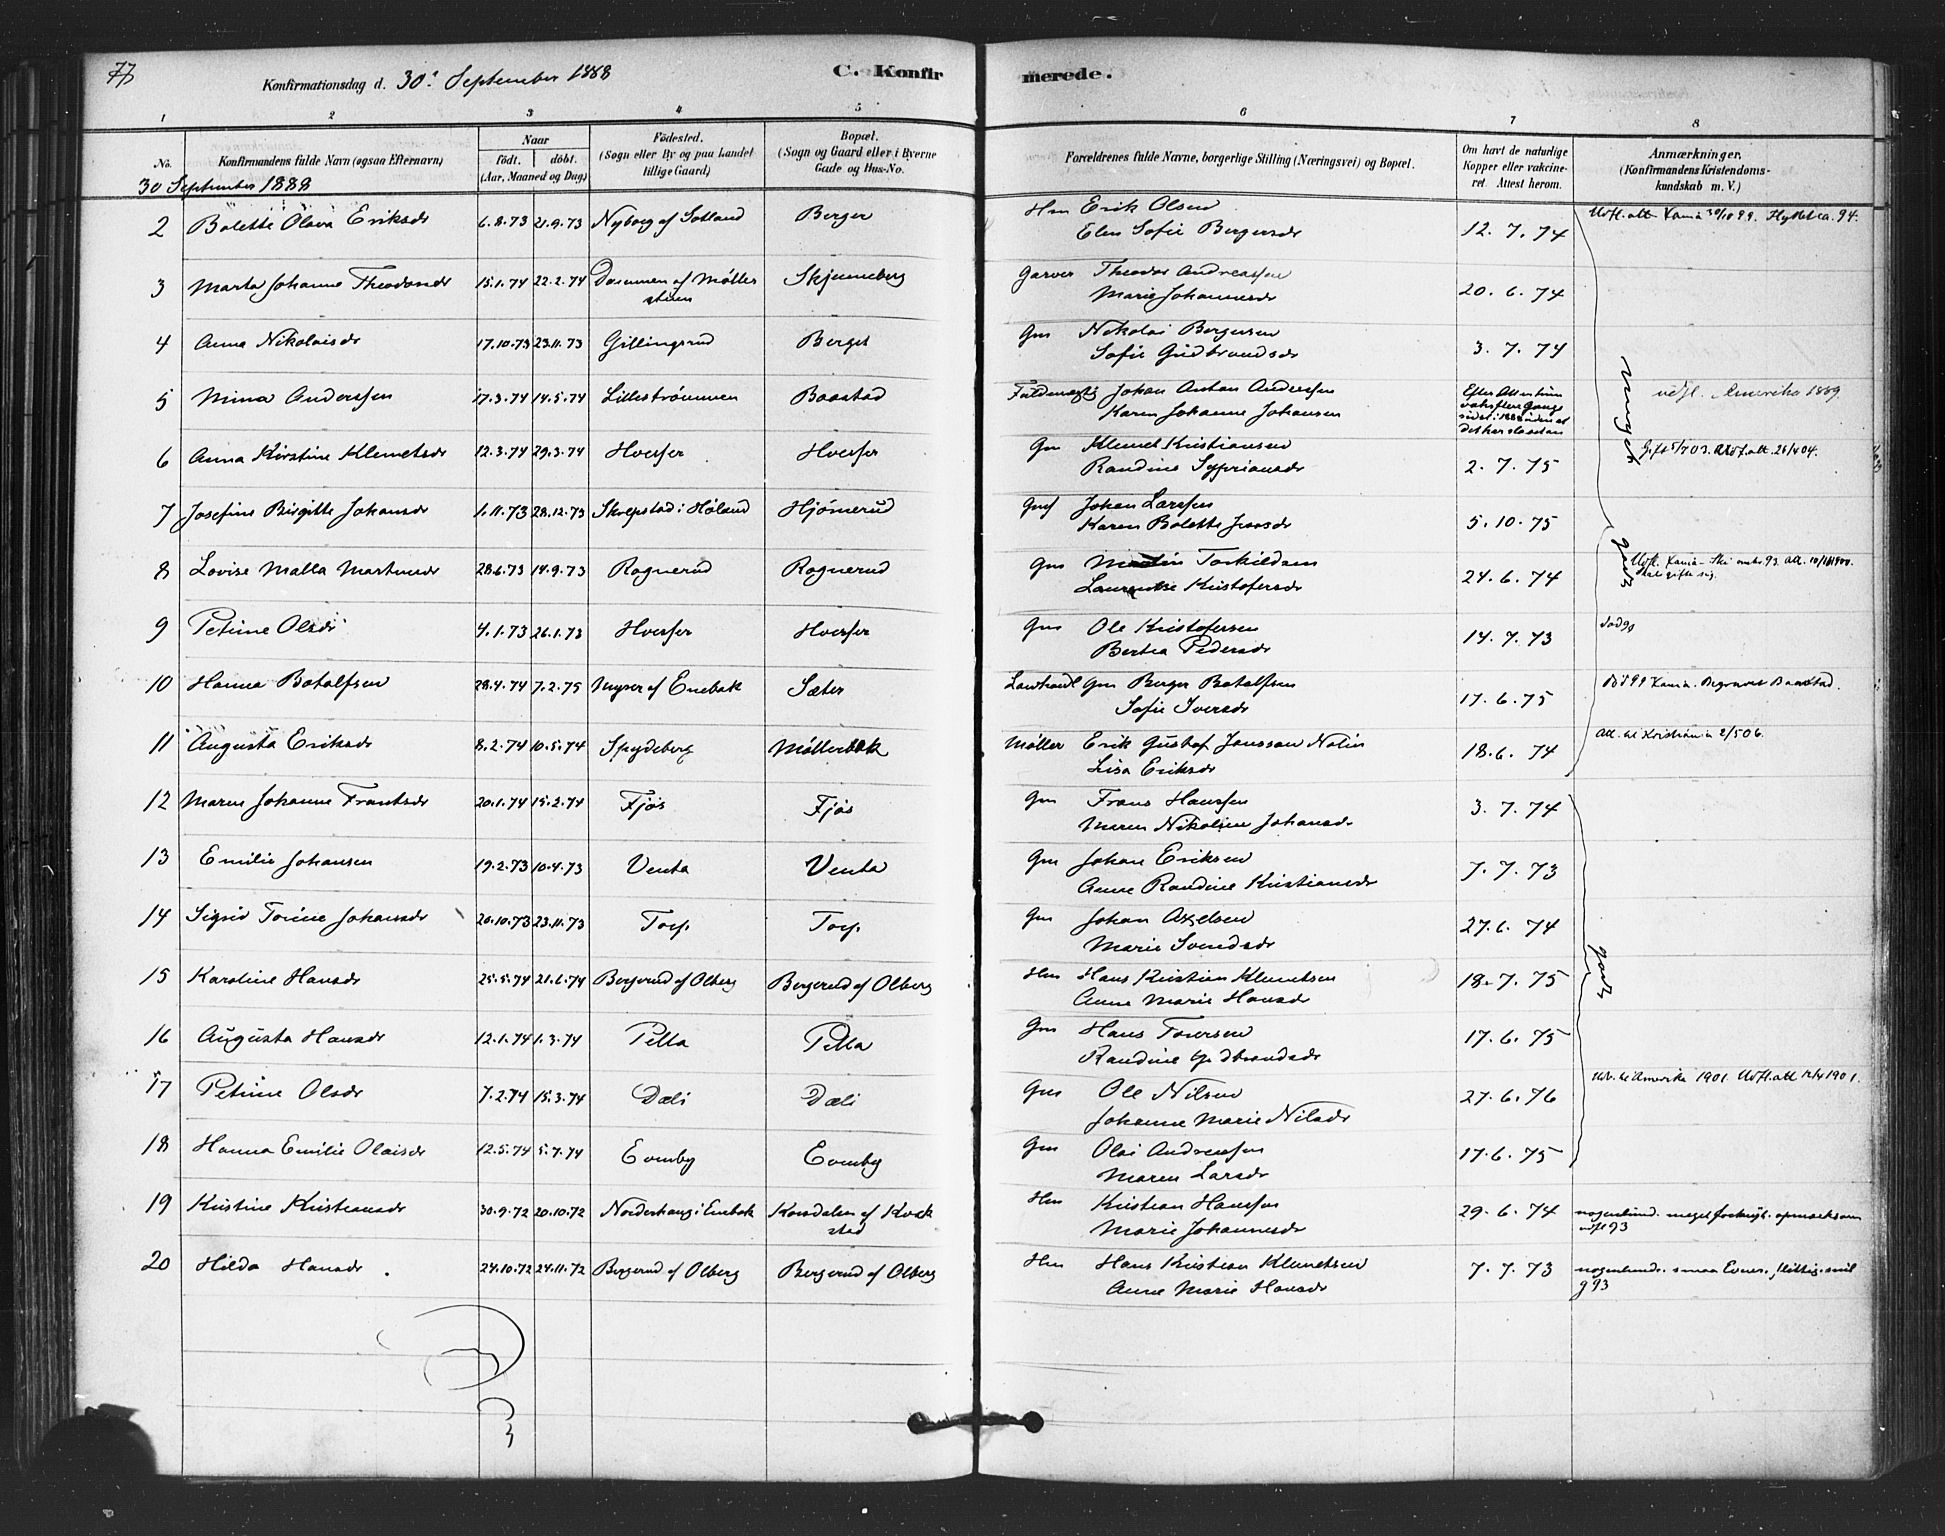 77
Konfirmationsdag d. 30. September 1888
C. Konfir
merede.
1 2 3 4 5
6 7 8
No.
Konfirmandens fulde Navn (ogsaa Efternavn)
Naar
födt. döbt.
(Aar, Maaned og Dag)
Födested.
(Sogn eller By og paa Landet
tillige Gaard)
Bopæl.
(Sogn og Gaard eller i Byerne
Gade og Hus-No.
Forældrenes fulde Navne, borgerlige Stilling (Næringsvei) og Bopæl.
Om havt de naturlige
Kopper eller vakcine-
ret Attest herom.
Anmærkninger.
(Konfirmandens Kristendoms-
kundskab m. V.)
30 September 1888
2 Bolette Olava Eriksdr 6.8.73 21.9.73 Nyborg af Sotland Berger Hm Erik Olsen 12.7.74
Elen Sofie Bergersdr
3 Marta Johanne Theodorsdr 15.1.74 22.2.74 af Møller Skjønneberg Garver Theodor Andreassen 20.6.74
stuen Marie Johannesdr
4 Anna Nikolaisdr 17.10.73 23.11.73 Gillingsrud Berger Gm Nikolai Bergersen 3.7.74
Sofie Gudbrandsdr
5 Mina Anderssen 17.3.74 14.5.74 Lillestrømmen Baastad Fuldmægtig Johan Anton Anderssen udfl. Amerika 1889.
Karen Johanne Johansen
6 Anna Kirstine Klemetsdr 12.3.74 29.3.74 Hverfer Hverfer Gm Klemet Kristiansen 2.7.75
Randine Sypriansdr
7 Josefine Birgitte Johansdr 1.11.73 28.12.73 Skolpstad i Høland Hjømerud Gmf Johan Larssen 5.10.75
Karen Bolette
8 Lovise Malla Martinsdr 28.6.73 14.9.73 Rognerud Rognerud Gm Martin Torkildsen 24.6.74
Laurentse Kristofersdr
9 Petrine Olsdr 4.1.73 26.1.73 Hverfer Hverfer Gm Ole Kristofersen 14.7.73
Bertea Pedersdr
10 Hanna Botolfsen 28.4.74 7.2.75 Myrer af Enebak Sæter Landhandl Gm Berger Botolfsen 17.6.75
Sofie Iversdr
11 Augusta Eriksdr 8.2.74 10.5.74 Spydeberg Møllerbæk Møller Erik Gustaf Jonsson Nolin 18.6.74 Att. til Kristiania 2/5 06.
Lisa Eriksdr
12 Maren Johanne Frantsdr 20.1.74 15.2.74 Fjøs Fjøs Gm Frans Hanssen 3.7.74
Maren Nikoline Johansdr
13 Emilie Johansen 19.2.73 10.4.73 Venta Venta Gm Johan Eriksen 7.7.73
Anne Randine Kristiansdr
14 Sigrid Torine Johansdr 20.10.73 23.11.73 Torp. Torp. Gm Johan Axelsen 27.6.74
Marie Svendsdr
15 Karoline Hansdr 25.5.74 21.6.74 Bergerud af Olberg Bergerud af Olberg Hm Hans Kristian Klemetsen 18.7.75
Anne Marie Hansdr
godt
16 Augusta Hansdr 12.1.74 1.3.74 Pella Pella Gm Hans Toversen 17.6.75
Randine Gudbrandsdr
17 Petrine Olsdr 7.2.74 15.3.74 Dæli Dæli Gm Ole Nilsen 27.6.76 Udv. til Amerika 1901. Udfl.att 12/4 1901.
Johanne Marie Nilsdr
18 Hanna Emilie Olaisdr 12.5.74 5.7.74 Eomby Eomby Gm Olai Andreassen 17.6.75
Maren Larsdr
19 Kristine Kristiansdr 30.9.72 20.10.72 Norderhaug i Enebak Korsdalen af Kvak Hm Kristian Hanssen 29.6.74
stad Marie Johannesdr
20 Hilda Hansdr 24.10.72 24.11.72 Bergerud af Olberg Bergerud af Olberg Hm Hans Kristian Klemetsen 7.7.73 nogenlunde. smaa Evner. flittig. snil
Anne Marie Hansdr g 93